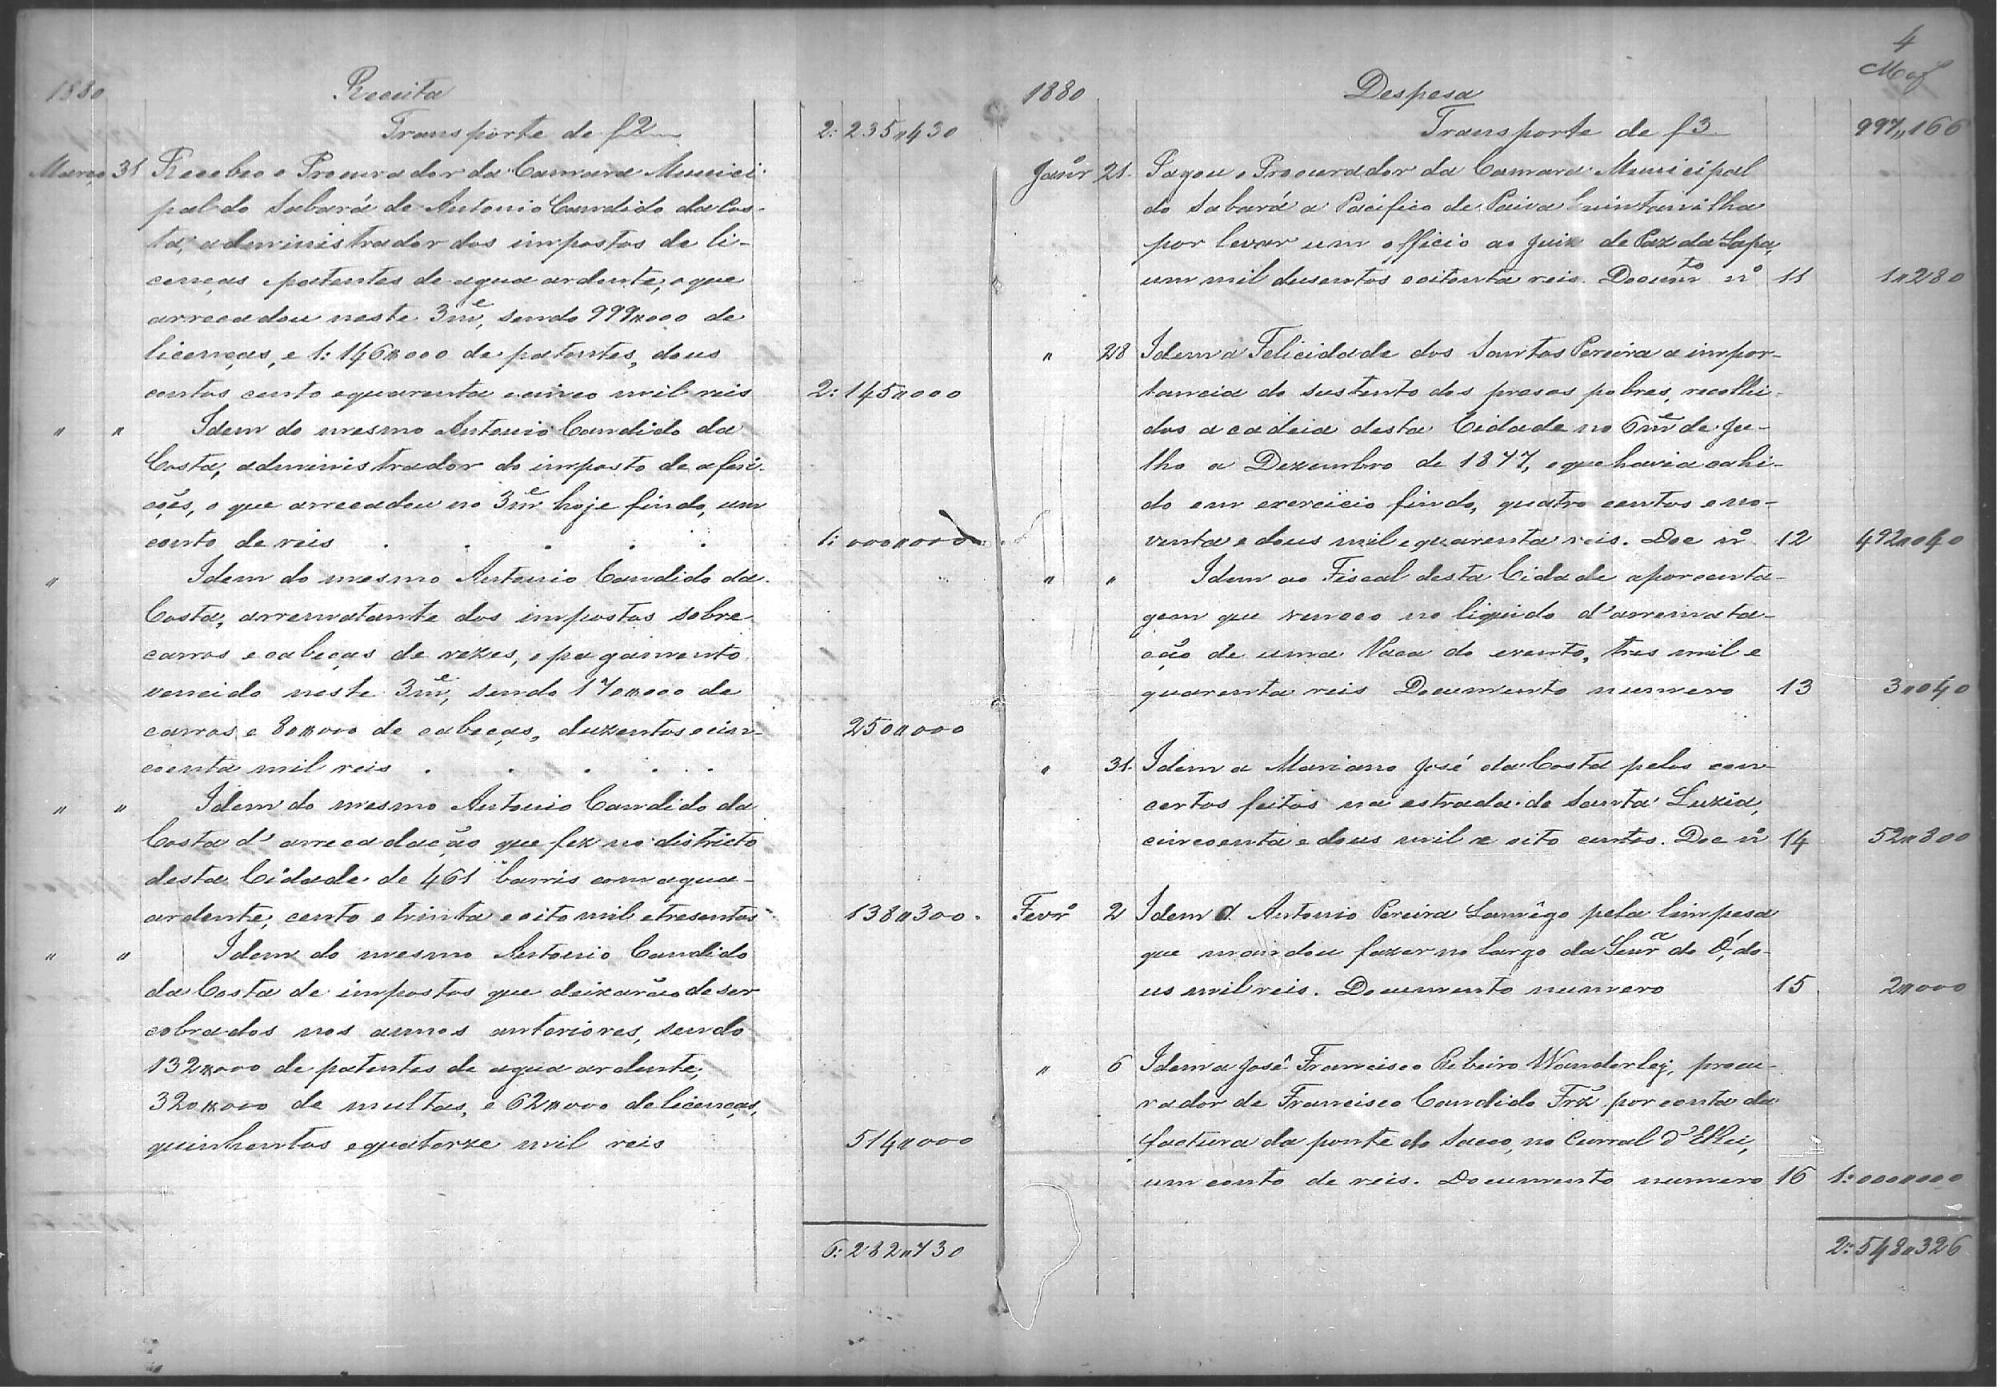 1880 Receita
Transporte de f2 2:235"430
Março 31 Recebeo o Procurador da Camara Munici-
pal do Sabará de Antonio Candido da Cos-
ta, administrador dos impostos de li-
cenças e patentes de agua ardente, o que
arrecadou neste 3mᵉ, sendo 999"000 de
licenças, e 1:146"000 de patentes, dous
contos cento e quarenta e cinco mil reis 2:145"000
" " Idem do mesmo Antonio Candido da
Costa, administrador do imposto de aferi-
ções, o que arrecadou no 3mᵉ hoje findo, um
conto de reis . . . . . 1:000"000
" Idem do mesmo Antonio Candido da
Costa, arrematante dos impostos sobre
carros e cabeças de rezes, o pagamento
vencido neste 3mᵉ, sendo 170"000 de
carros e 80"000 de cabeças, duzentos e cin- 250"000
coenta mil reis . . . . .
" " Idem do mesmo Antonio Candido da
Costa d'arrecadação que fez no districto
desta Cidade de 461 barris com agua-
ardente, cento e trinta e oito mil e tresentos 138"300.
" " Idem do mesmo Antonio Candido
da Costa de impostos que deixarão de ser
cobrados nos annos anteriores, sendo
132"000 de patentes de agua ardente,
320"000 de multas, e 62"000 de licenças,
quinhentos e quatorze mil reis 514"000
6:282"730
4
1880 Despesa
Transporte de f3 997"166
Janr 21. Pagou o Procurador da Camara Municipal
do Sabará a Pacifico de Paiva Quintanilha
por levar um officio ao Juiz de Paz da Lapa,
um mil dusentos e oitenta reis. Documᵗᵒ nº 11 1"280
" 28 Idem a Felicidade dos Santos Pereira a impor-
tancia do sustento dos presos pobres, recolhi-
dos a cadeia desta Cidade no 6mᵉ de Ju-
lho a Dezembro de 1877, e que havia cahi-
do em exercicio findo, quatro centos e no-
venta e dous mil e quarenta reis. Doc nº 12 492"040
" " Idem ao Fiscal desta Cidade a porcenta-
gem que venceo no liquido d'arremata-
ção de uma Vaca do evento, tres mil e
quarenta reis Documento numero 13 3"040
" 31. Idem a Mariano José da Costa pelos con-
certos feitos na estrada de Santa Luzia,
cincoenta e dous mil e oito centos. Doc nº 14 52"800
Fevrº 2 Idem a Antonio Pereira Lamêgo pela limpesa
que mandou fazer no largo da Senrᵃ do Ó, do-
us mil reis. Documento numero 15 2"000
" 6 Idem a José Francisco Ribeiro Wanderley, procu-
rador de Francisco Candido Frz por conta da
factura da ponte do Sacco, no Curral d'ElRei,
um conto de reis. Documento numero 16 1:000"000
2:548"326